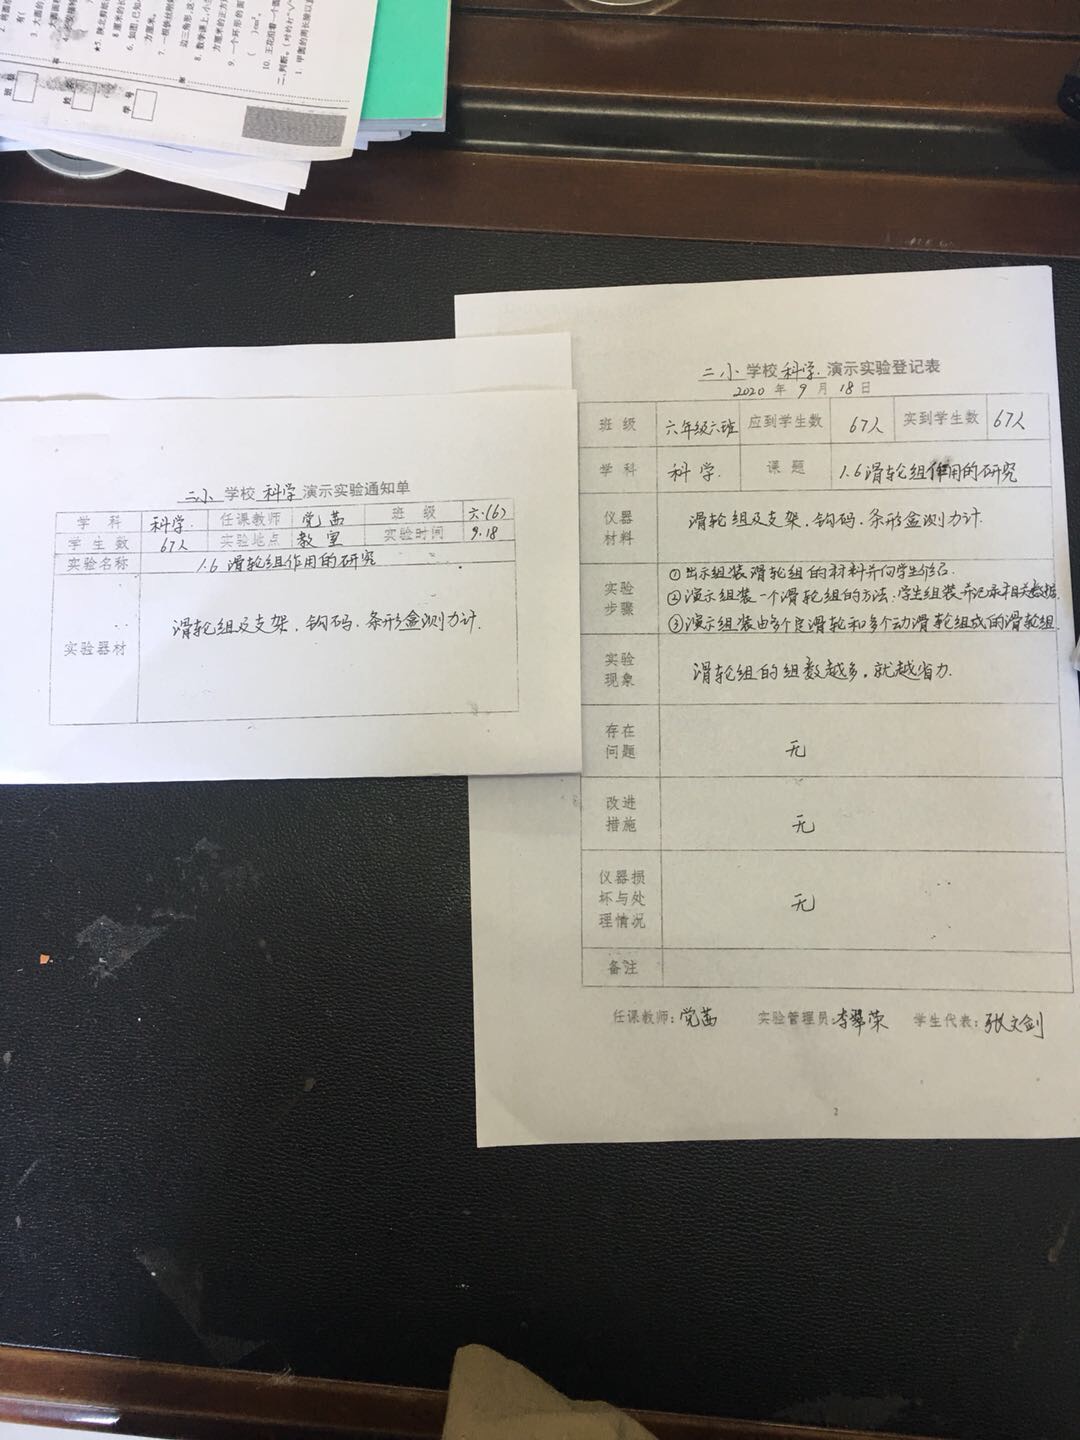 班级
姓名
学号
3. 大圆的
6. 如图,已知
方厘米。
7. 一根铁丝
边三角形,这
8. 数学课上,小
方厘米的正方
9. 一个环形的面
( )cm²。
10. 王花沿着一个
二、判断。(对的打“√”
1. 甲圆的周长除以直
二小 学校 科学 演示实验通知单
学 科 科学. 任课教师 党茜 班 级 六.(6)
学 生 数 67人 实验地点 教室 实验时间 9.18
实验名称 1.6 滑轮组作用的研究
实验器材 滑轮组及支架、钩码、条形盒测力计.
二小 学校 科学. 演示实验登记表
2020 年 9 月 18 日
班 级 六年级六班 应到学生数 67人 实到学生数 67人
学 科 科学. 课 题 1.6滑轮组作用的研究
仪器材料 滑轮组及支架、钩码、条形盒测力计.
实验步骤 ①出示组装滑轮组的材料并向学生介绍.
②演示组装一个滑轮组的方法.学生组装并记录相关数据.
③演示组装由多个定滑轮和多个动滑轮组成的滑轮组.
实验现象 滑轮组的组数越多,就越省力.
存在问题 无
改进措施 无
仪器损坏与处理情况 无
备注
任课教师:党茜 实验管理员:李翠荣 学生代表:张文剑
2